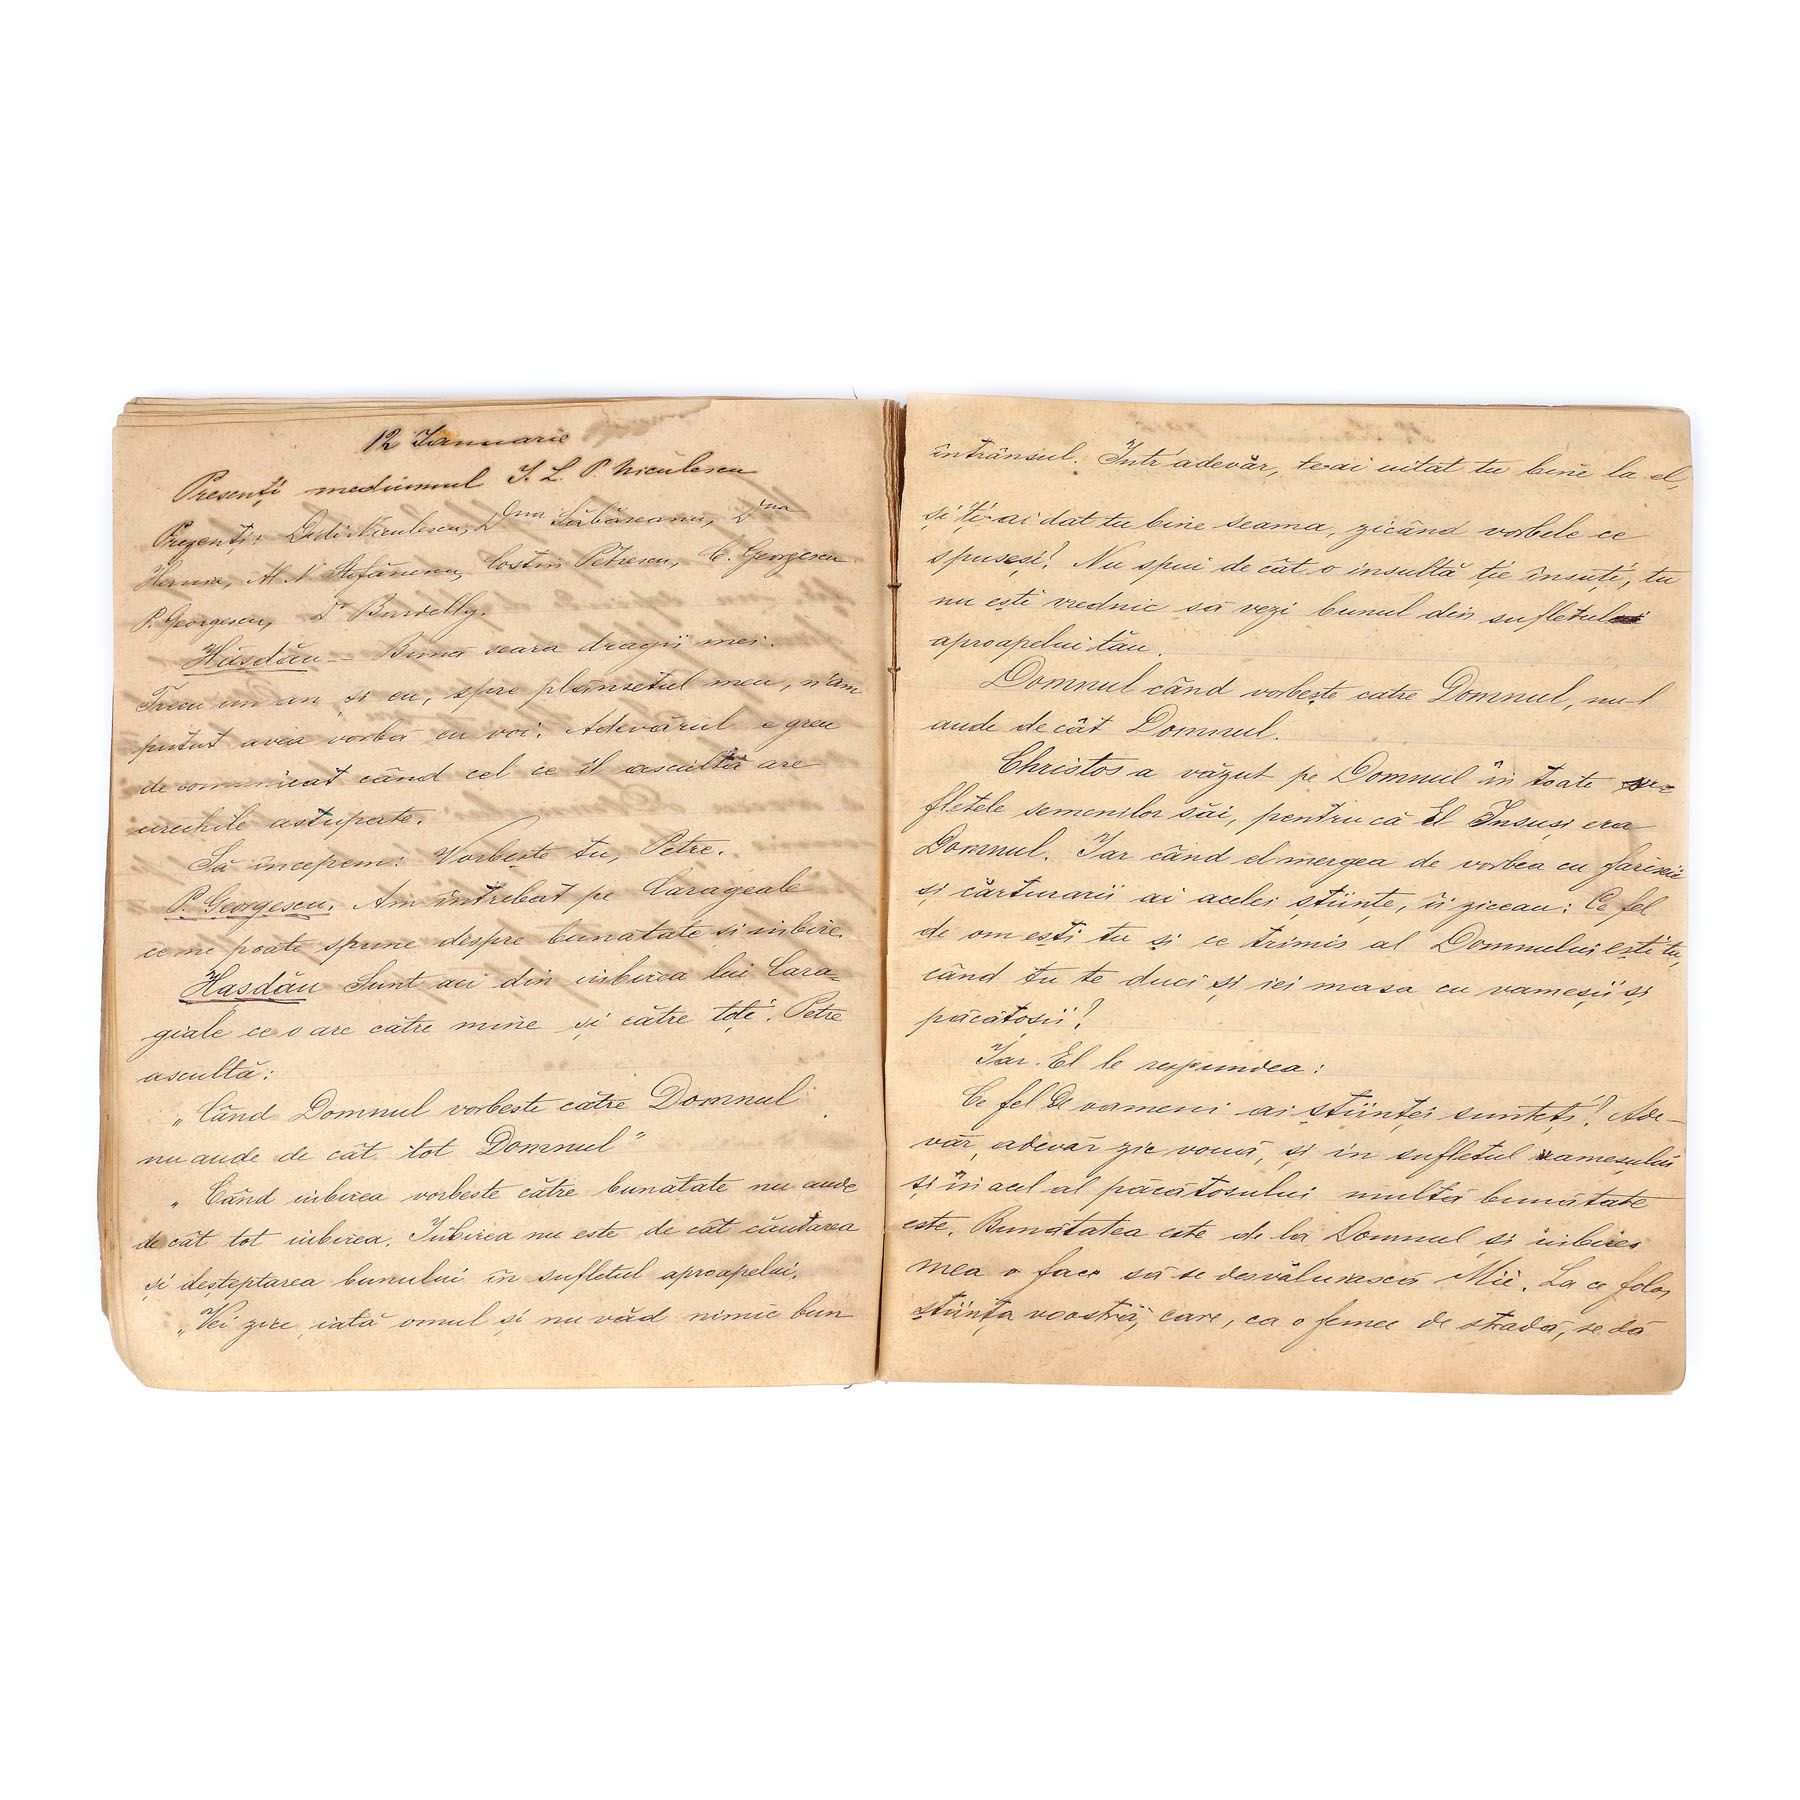 12 Ianuarie
Presenți mediumul I. L. P. Niculescu
Prezenți: Didi Niculescu, Dna Săbăreanu, Dna
Herma, Al N. Ștefănescu, Costin Petrescu, C. Georgescu
P. Georgescu, Dr
Hasdău – Bună seara dragii mei.
Trecu un an și eu, spre plânsetul meu, n'am
putut avea vorbă cu voi. Adevărul e greu
de comunicat când cel ce îl ascultă are
urechile astupate.
Să începem: Vorbește tu, Petre.
P. Georgescu. Am întrebat pe Carageale
ce ne poate spune despre bunătate și iubire.
Hasdău Sunt aci din iubirea lui Cara=
giale ce o are către mine și către toți. Petre
ascultă:
„Când Domnul vorbește către Domnul
nu aude de cât tot Domnul"
„Când iubirea vorbește către bunătate nu aude
de cât tot iubirea. Iubirea nu este de cât căutarea
și deșteptarea bunului în sufletul aproapelui.
„Vei zice iată omul și nu văd nimic bun
întrânsul. Într'adevăr, te-ai uitat tu bine la el,
și ți-ai dat tu bine seama, zicând vorbele ce
spuseși? Nu spui de cât o insultă ție însuți, tu
nu ești vrednic să vezi bunul din sufletul
aproapelui tău.
Domnul când vorbește catre Domnul, nu-l
aude de cât Domnul.
Christos a văzut pe Domnul în toate su=
fletele semenilor săi, pentru că El Însuși era
Domnul. Iar când el mergea de vorbea cu fariseii
și cărturarii ai acelei științe, îi ziceau: Ce fel
de om ești tu și ce trimis al Domnului ești tu,
când tu te duci și iei masa cu vameșii și
păcătosii?
Iar El le respundea:
Ce fel de oameni ai științei sunteți? Ade-
văr, adevăr zic vouă, și în sufletul vameșului
și în acel al păcătosului multă bunătate
este. Bunătatea este de la Domnul și iubirea
mea o face să se desvăluiască Mie. La ce folos
știința voastră, care, ca o femee de stradă, se dă